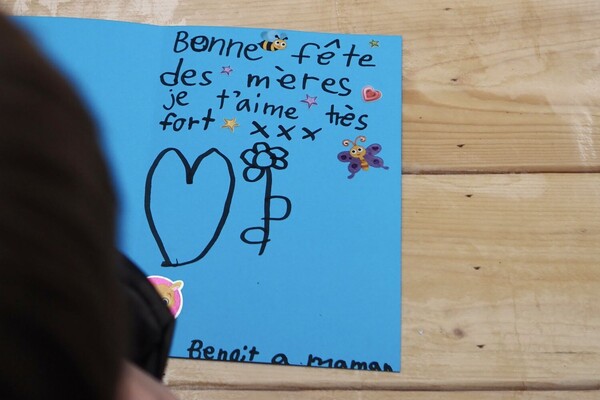 Bonne fête
des mères
je t'aime très
fort xxx
Benoit a maman